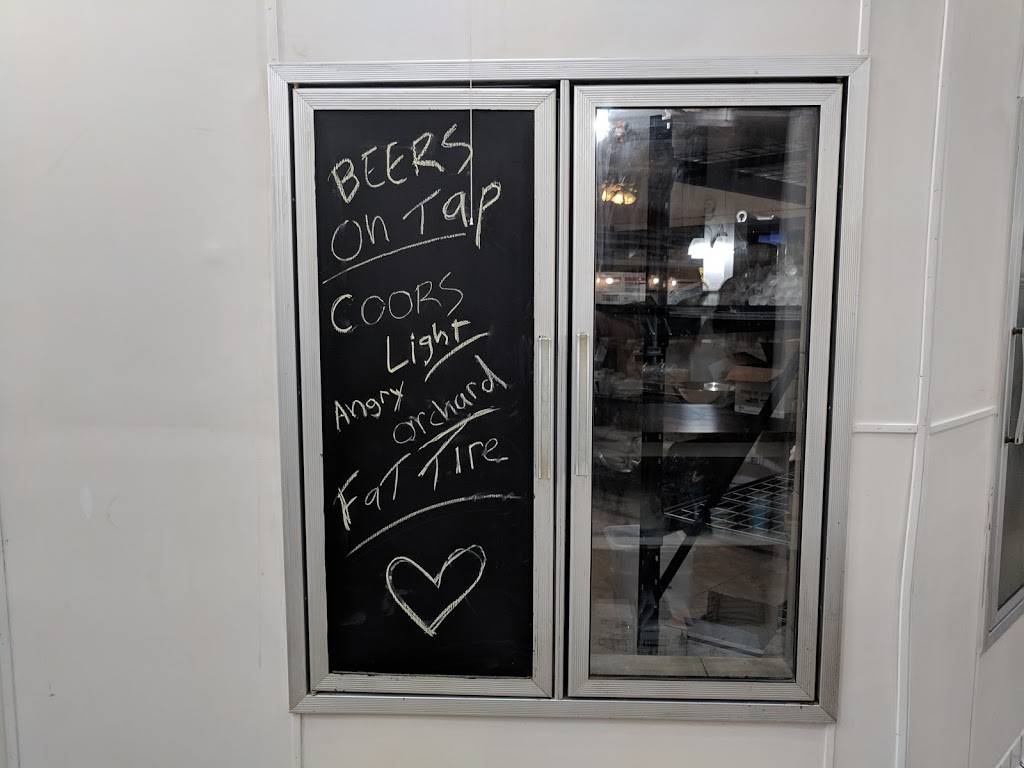 BEERS
On Tap
COORS
Light
Angry
orchard
FaT Tire